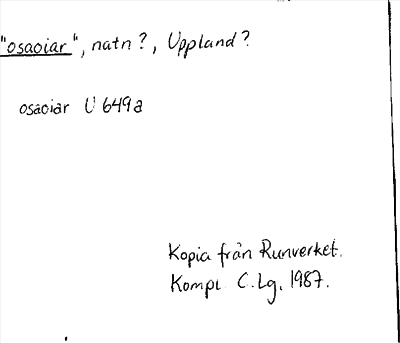 "osaoiar", natn?, Uppland?
osaoiar U 649a
Kopia från Runverket.
Kompl. C.Lg. 1987.